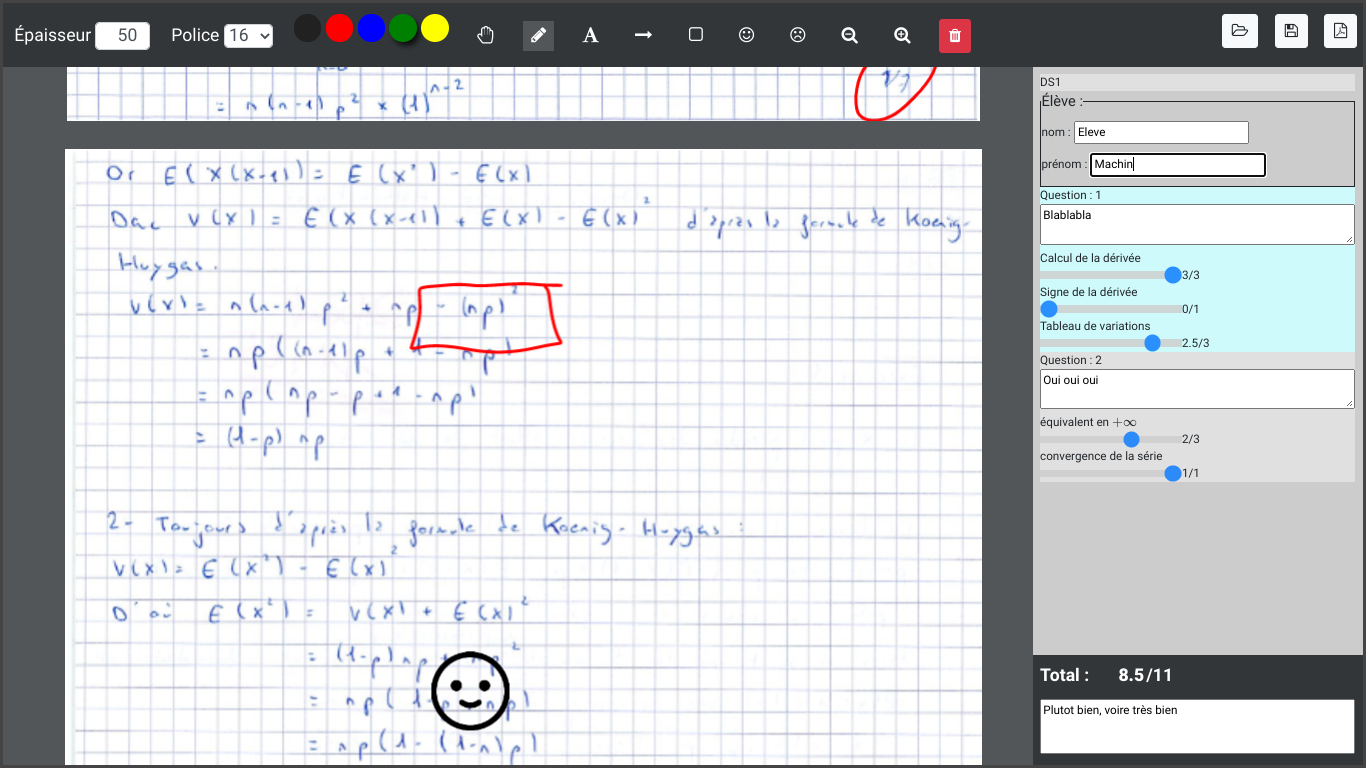 Épaisseur 50 Police 16
= n(n-1) p² × (1)^n-2
Or E(X(X-1)) = E(X²) - E(X)
Donc V(X) = E(X(X-1)) + E(X) - E(X)² d'après la formule de Koenig-
Huygas.
V(X) = n(n-1) p² + np - (np)²
= np((n-1)p + 1 - np)
= np(np - p + 1 - np)
= (1-p) np
2- Toujours d'après la formule de Koenig-Huygas :
V(X) = E(X²) - E(X)²
D'où E(X²) = V(X) + E(X)²
= (1-p)np + np²
= np(1-p np)
= np(1-(1-n)p)
DS1
Élève :
nom : Eleve
prénom : Machin
Question : 1
Blablabla
Calcul de la dérivée
3/3
Signe de la dérivée
0/1
Tableau de variations
2.5/3
Question : 2
Oui oui oui
équivalent en +∞
2/3
convergence de la série
1/1
Total : 8.5/11
Plutot bien, voire très bien